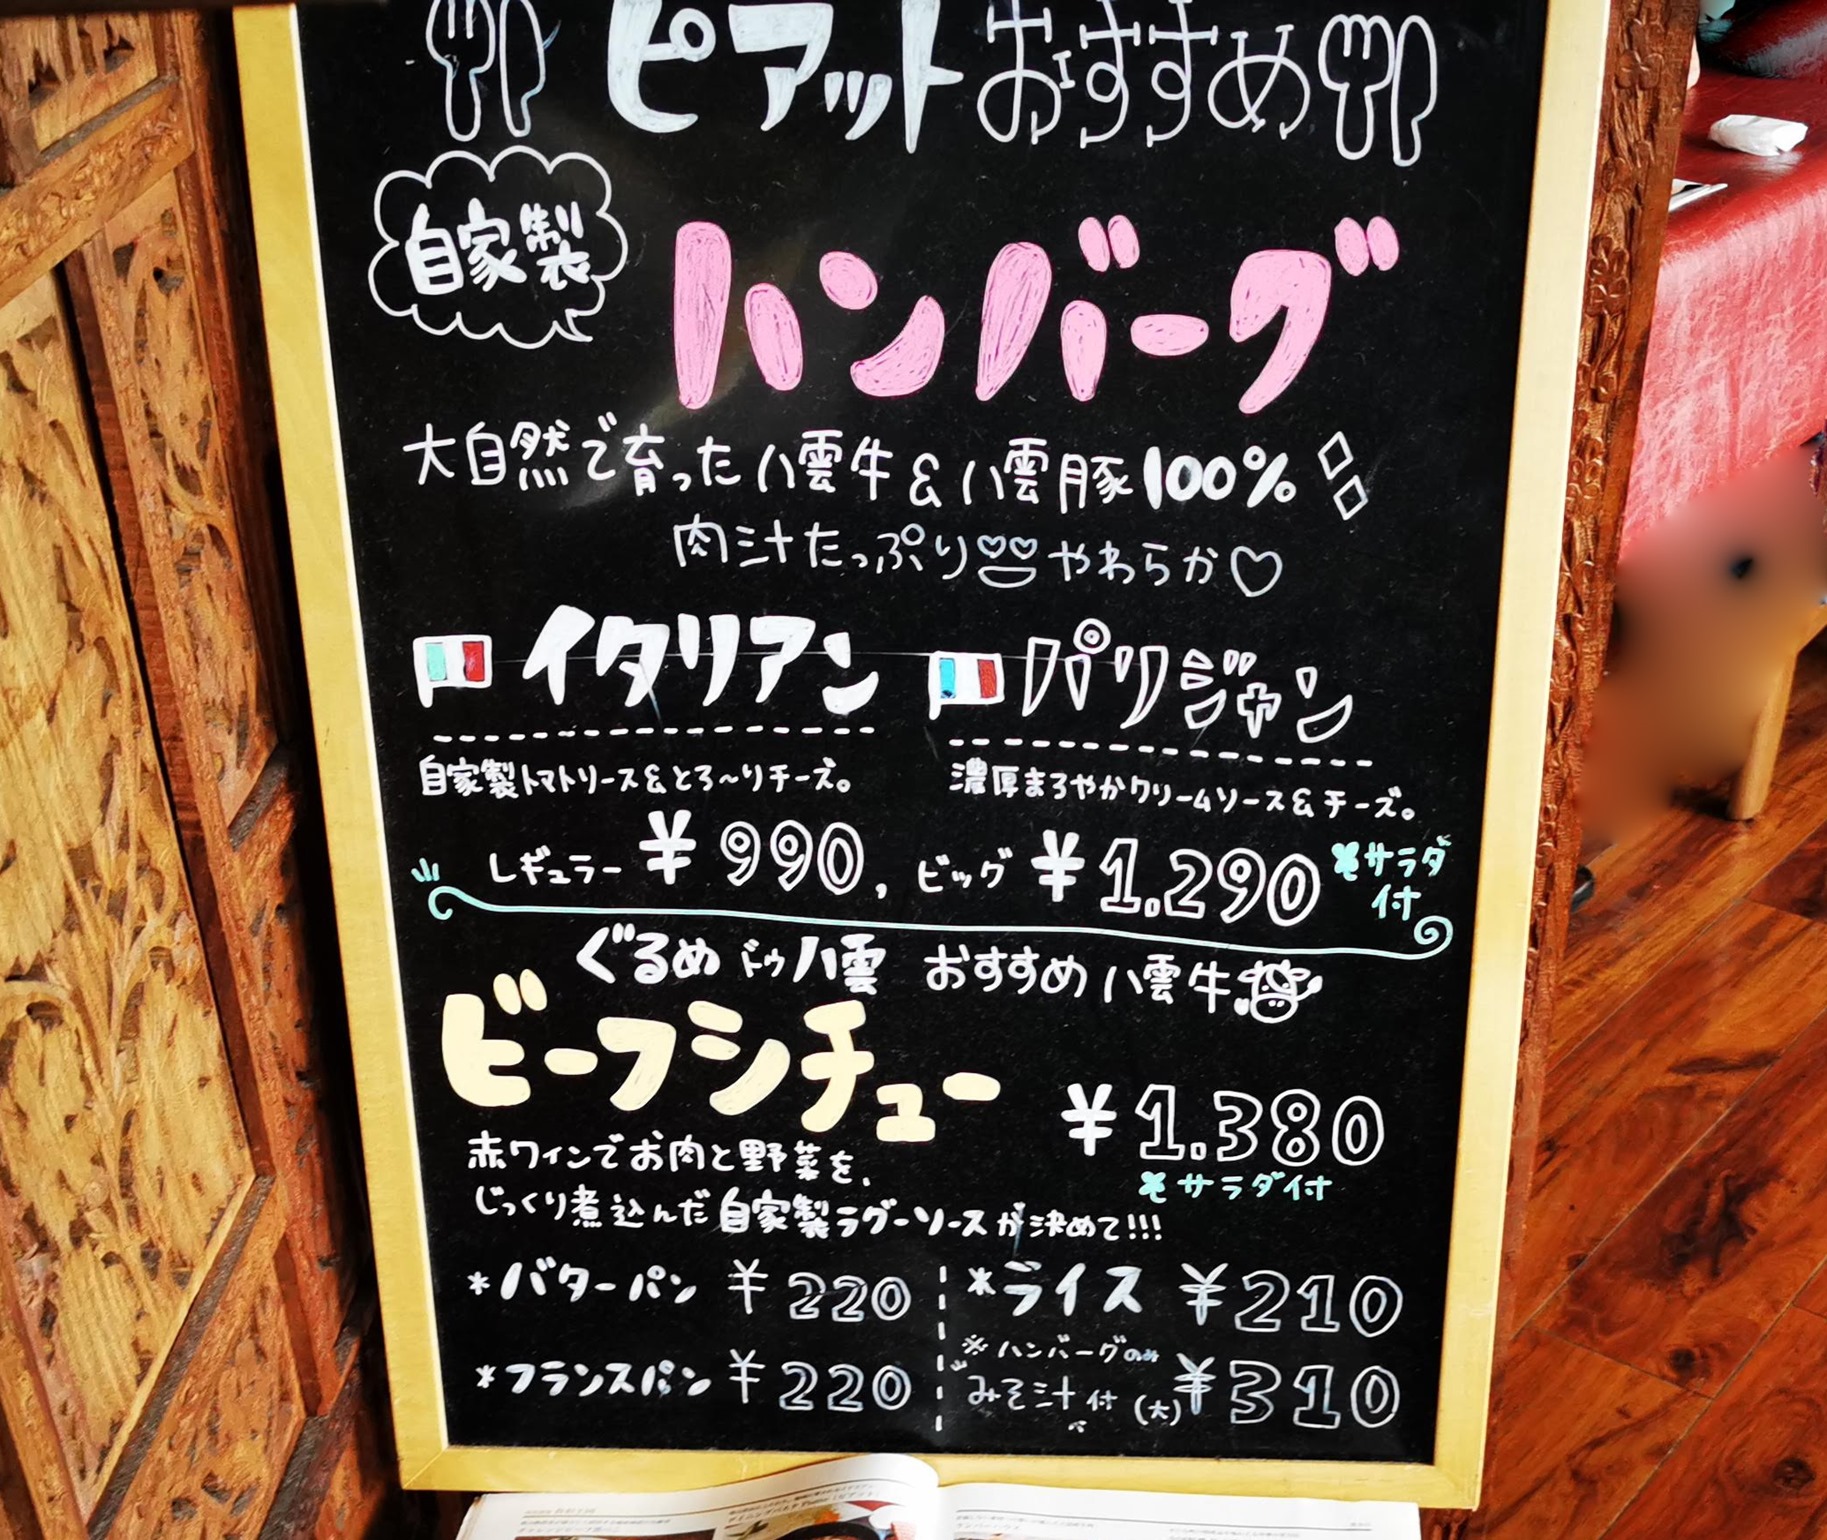 ピアットおすすめ
自家製
ハンバーグ
大自然で育った八雲牛&八雲豚100%
肉汁たっぷりやわらか♡
イタリアン
自家製トマトソース&とろ〜りチーズ。
パリジャン
濃厚まろやかクリームソース&チーズ。
レギュラー ¥990, ビッグ ¥1.290
サラダ
付
ぐるめドゥ八雲 おすすめ八雲牛
ビーフシチュー
¥1.380
サラダ付
赤ワインでお肉と野菜を、
じっくり煮込んだ自家製ラグーソースが決めて!!!
*バターパン ¥220
*フランスパン ¥220
*ライス ¥210
※ハンバーグのみ
みそ汁付 (大) ¥310